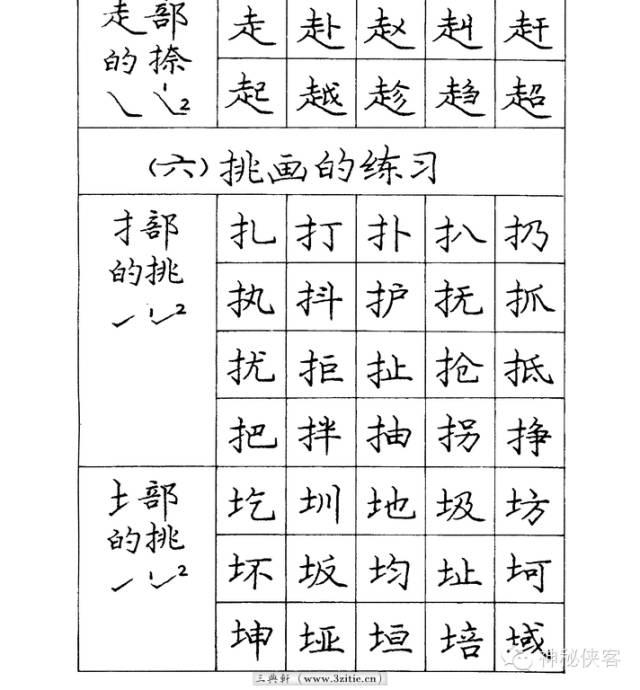 走部的捺
1 2
走 赴 赵 赳 赶
起 越 趁 趋 超
（六）挑画的练习
扌部的挑
1 2
扎 打 扑 扒 扔
执 抖 护 抚 抓
扰 拒 扯 抢 抵
把 拌 抽 拐 挣
土部的挑
1 2
圪 圳 地 圾 坊
坏 坂 均 址 坷
坤 垭 垣 培 域
神秘侠客
三典轩（www.3zitie.cn）